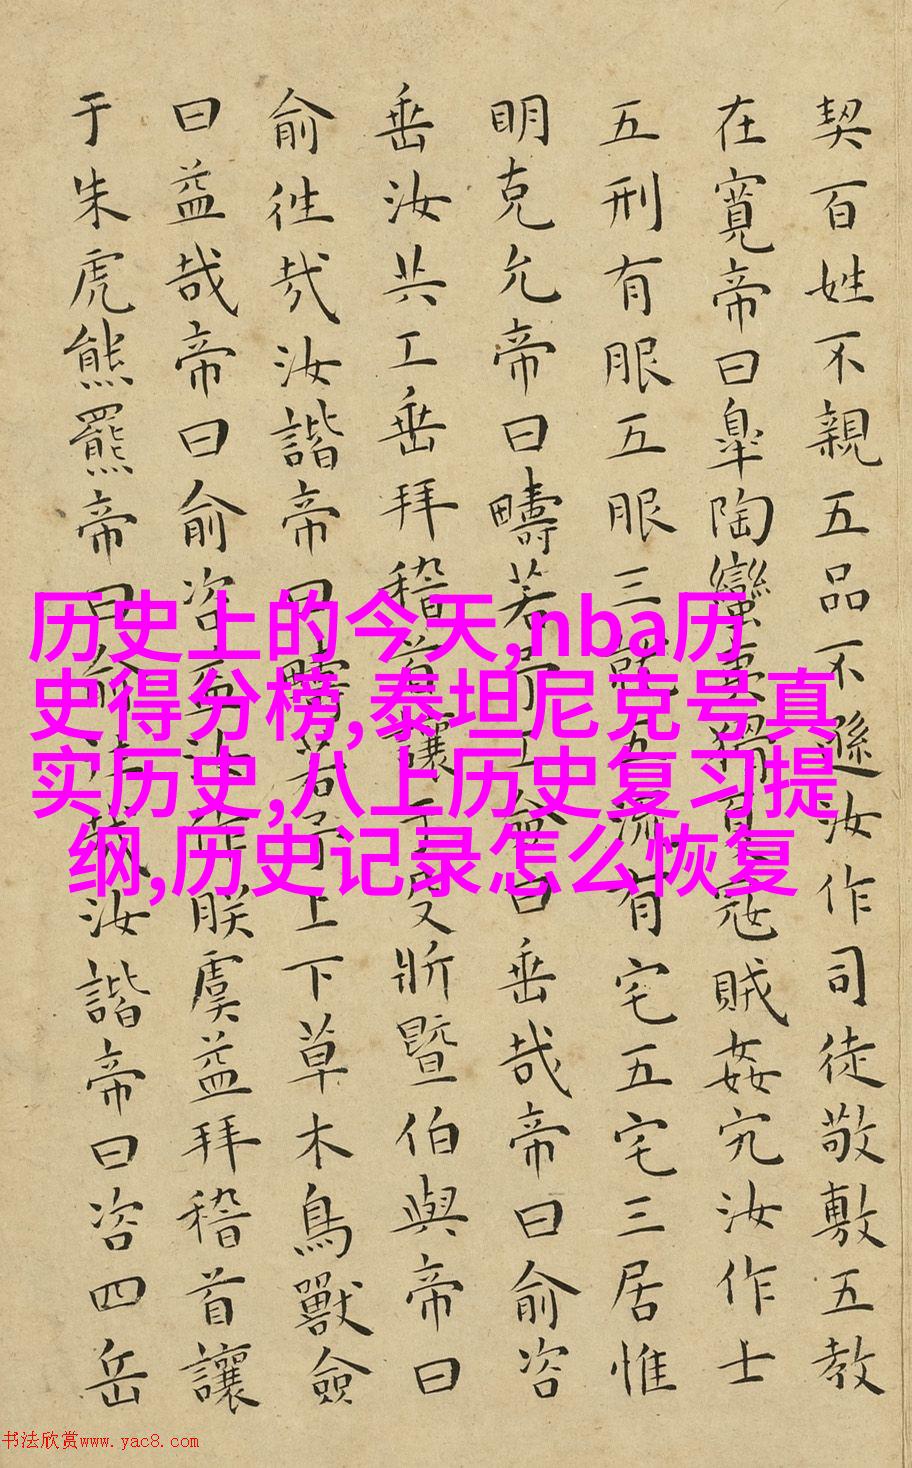 契百姓不親五品不遜汝作司徒敬敷五教
在寬帝曰皐陶蠻夷猾夏寇賊姦宄汝作士
五刑有服五服三就五流有宅五宅三居惟
明克允帝曰疇若予工僉曰垂哉帝曰俞咨
垂汝共工垂拜稽首讓于殳斨暨伯與帝曰
俞往哉汝諧帝曰疇若予上下草木鳥獸僉
曰益哉帝曰俞咨益汝作朕虞益拜稽首讓
于朱虎熊羆帝曰俞往哉汝諧帝曰咨四岳
历史上的今天,nba历
史得分榜,泰坦尼克号真
实历史,八上历史复习提
纲,历史记录怎么恢复
书法欣赏www.yac8.com